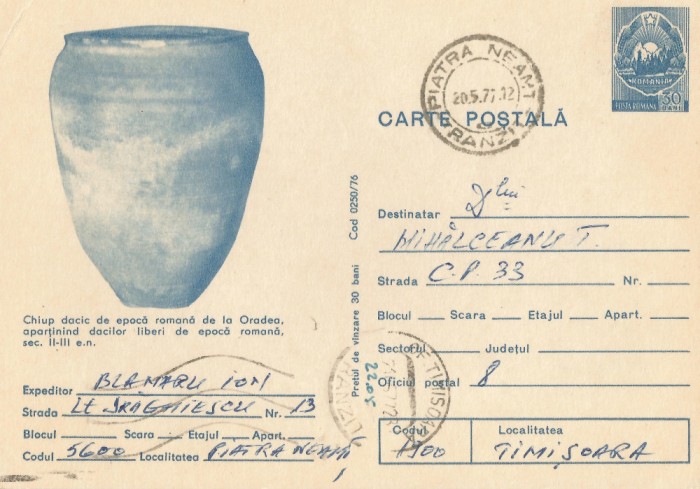 PIATRA NEAMȚ
20.5.77.12
TRANZIT
ROMANIA
POSTA ROMANA 30 BANI
CARTE POȘTALĂ
Destinatar Dlui
MIHĂLCEANU T.
Strada C.P. 33 Nr.
Blocul Scara Etajul Apart.
Sectorul Județul
Oficiul poștal 8
Codul Localitatea
1900 TIMIȘOARA
Cod 0250/76
Prețul de vînzare 30 bani
Chiup dacic de epocă romană de la Oradea,
aparținînd dacilor liberi de epocă romană,
sec. II-III e.n.
Expeditor ION
Strada Lt Nr. 13
Blocul Scara Etajul Apart.
Codul 5600 Localitatea PIATRA NEAMȚ
TIMISOARA
22.05